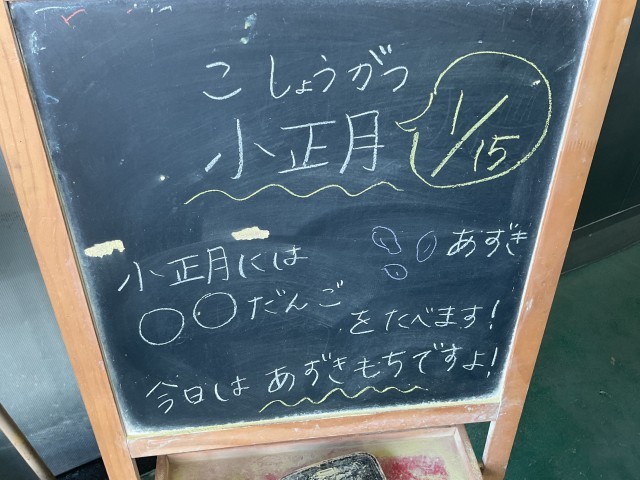 こしょうがつ
小正月
1/15
小正月には
あずき
だんご
をたべます!
今日は あずきもちですよ!